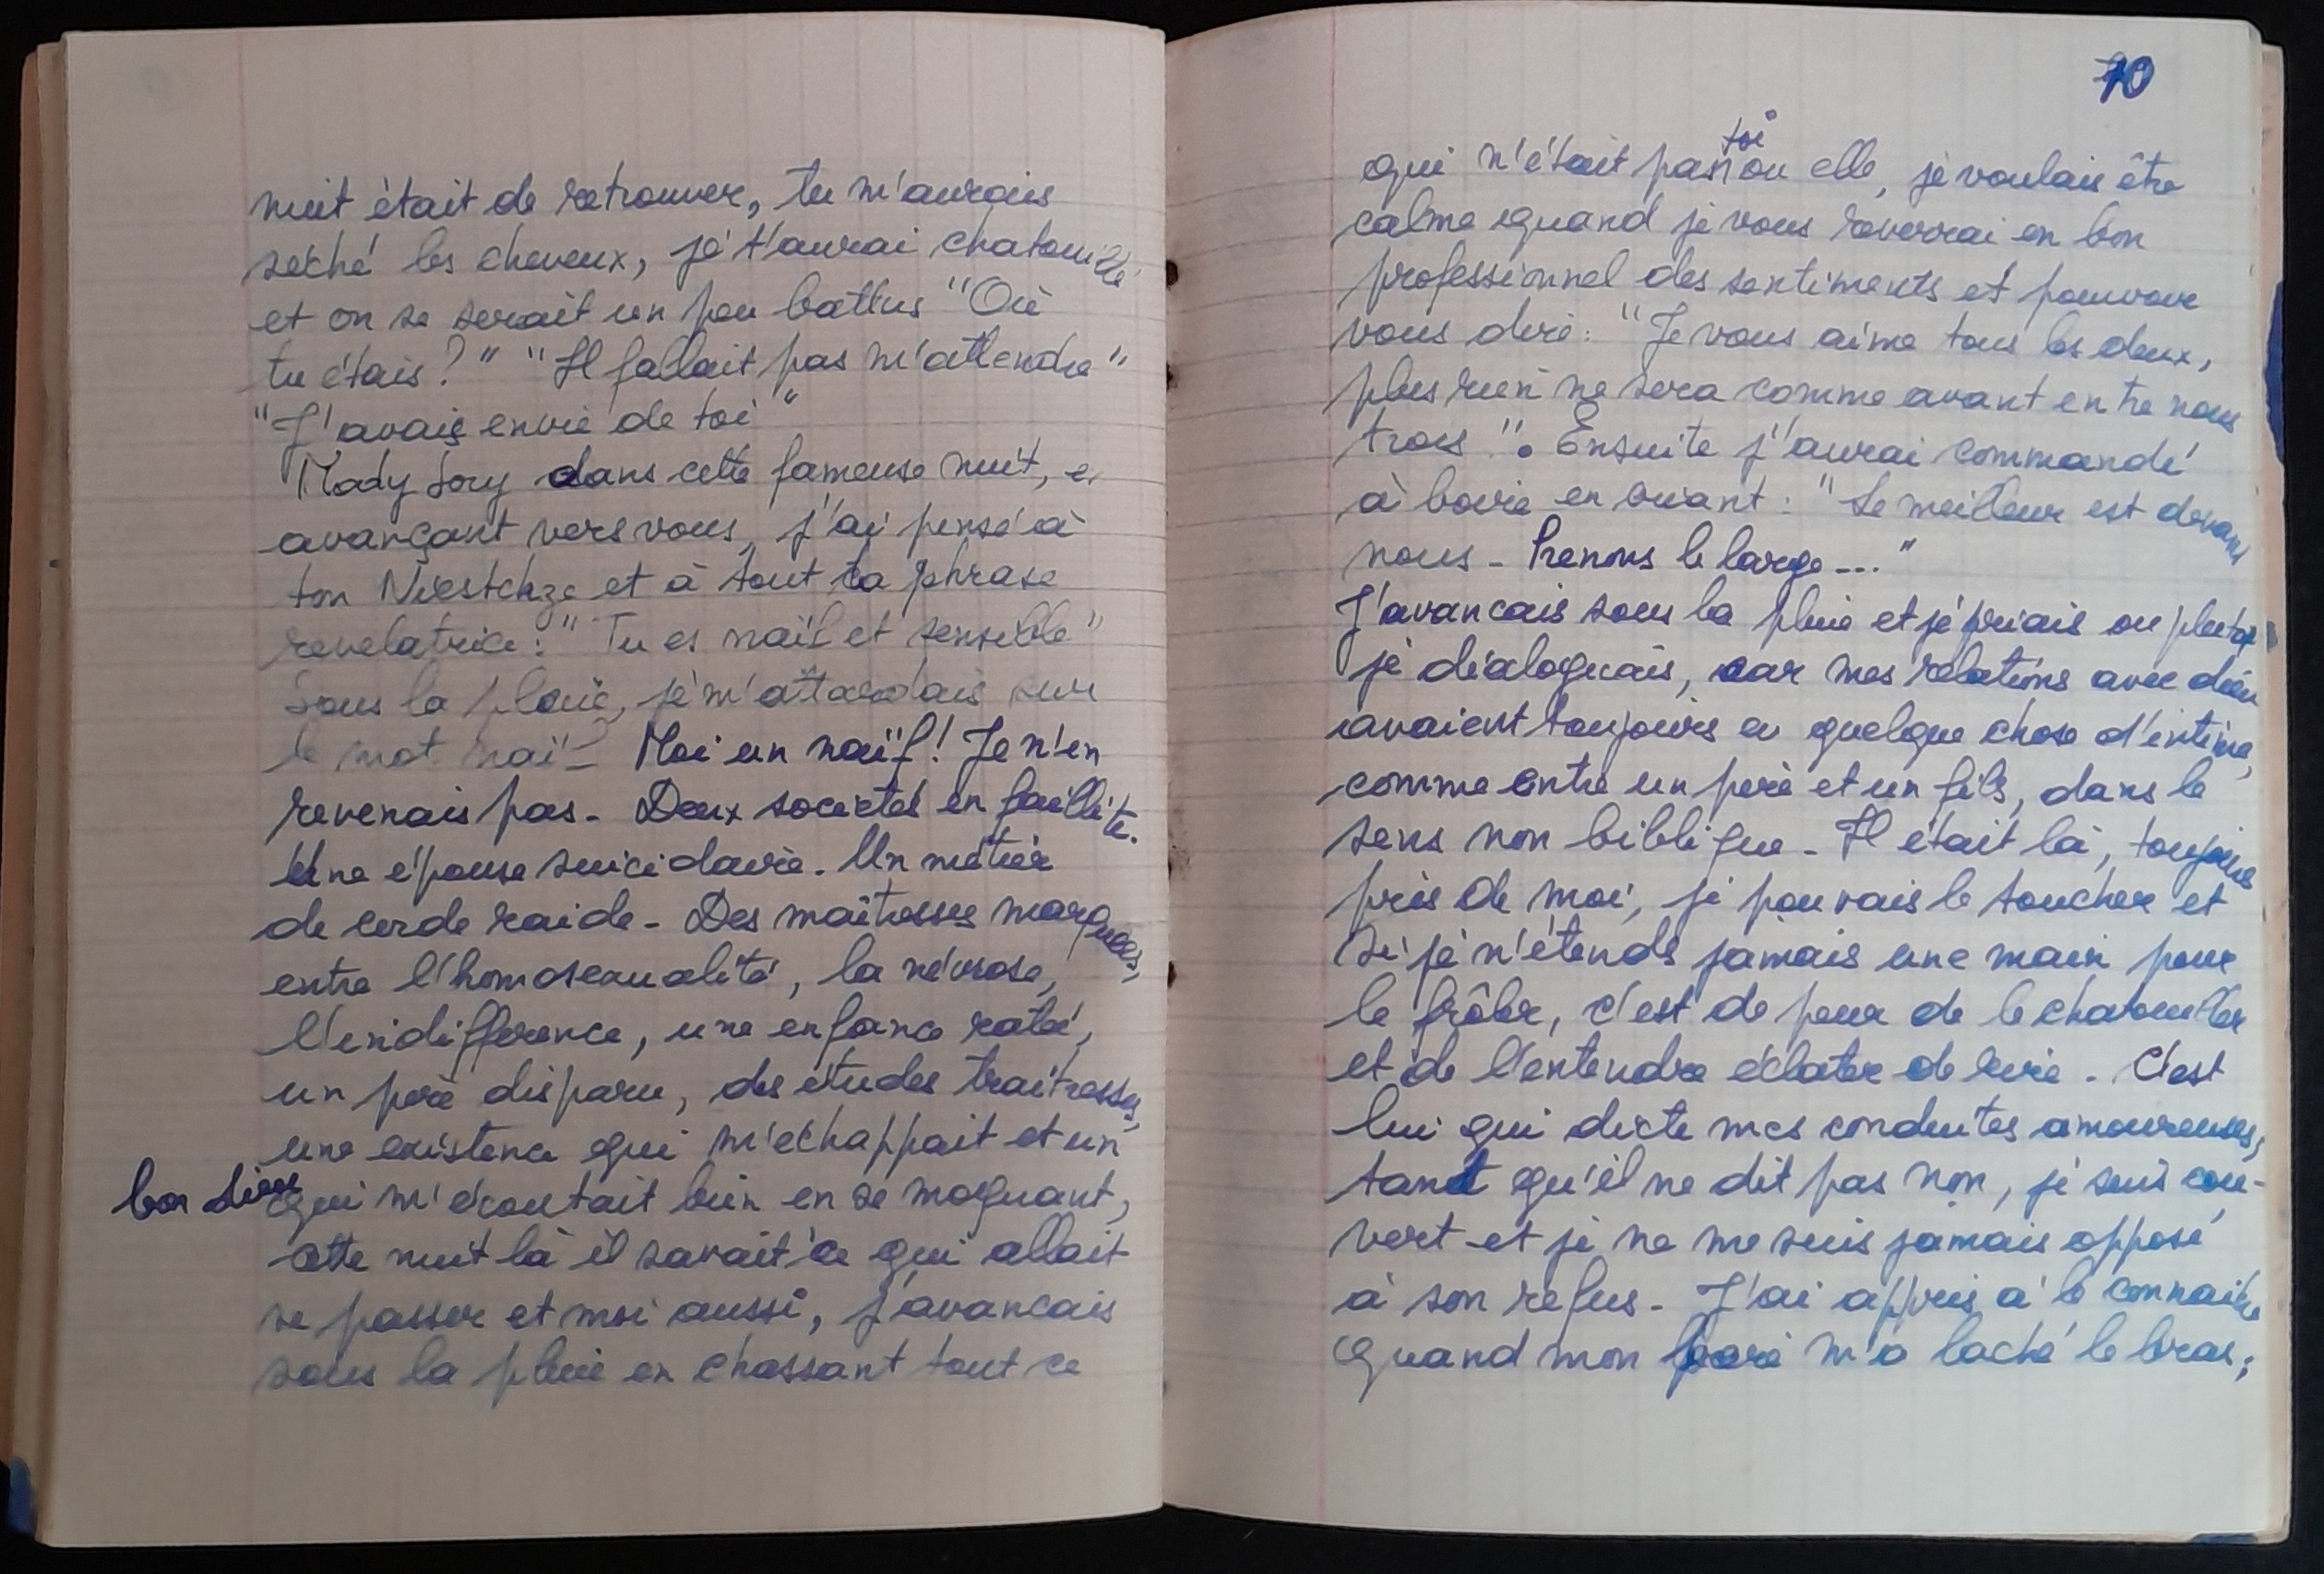 nuit était de retrouver, tu m'aurais
séché les cheveux, je t'aurai chatouillé
et on se serait un peu battus "Où
tu étais ?" "Il fallait pas m'attendre"
"J'avais envie de toi"
Mady Sory dans cette fameuse nuit, en
avançant vers vous, j'ai pensé à
ton Niestchze et à tout ta phrase
revelatrice : "Tu es naïf et sensible"
Sous la pluie, je m'attardais sur
le mot naïf - Moi un naïf ! Je n'en
revenais pas - Deux societés en faillite.
Une épouse suicidaire. Un métier
de corde raide - Des maîtresses marquées,
entre l'homosexualité, la névrose,
l'indifference, une enfance ratée,
un père disparu, des études traitresses,
une existence qui m'echappait et un
bon dieu qui m'écoutait bien en se moquant,
cette nuit là il savait ce qui allait
se passer et moi aussi, j'avancais
sous la pluie en chassant tout ce
70
toi
qui n'était pas ou elle, je voulais être
calme quand je vous reverrai en bon
professionnel des sentiments et pouvoir
vous dire : "Je vous aime tous les deux,
plus rien ne sera comme avant entre nous
trois". Ensuite j'aurai commandé
à boire en criant : "Le meilleur est devant
nous - Prenons le large..."
J'avancais sous la pluie et je priais ou plutot
je dialoguais, car mes relations avec dieu
avaient toujours eu quelque chose d'intime,
comme entre un père et un fils, dans le
sens non biblique - Il était là, toujours
près de moi, je pouvais le toucher et
si je n'étends jamais une main pour
le frôler, c'est de peur de le chatouiller
et de l'entendre éclater de rire. C'est
lui qui dicte mes conduites amoureuses,
tant qu'il ne dit pas non, je suis cou-
vert et je ne me suis jamais opposé
à son refus - J'ai appris à le connaitre
quand mon père m'a laché le bras ;